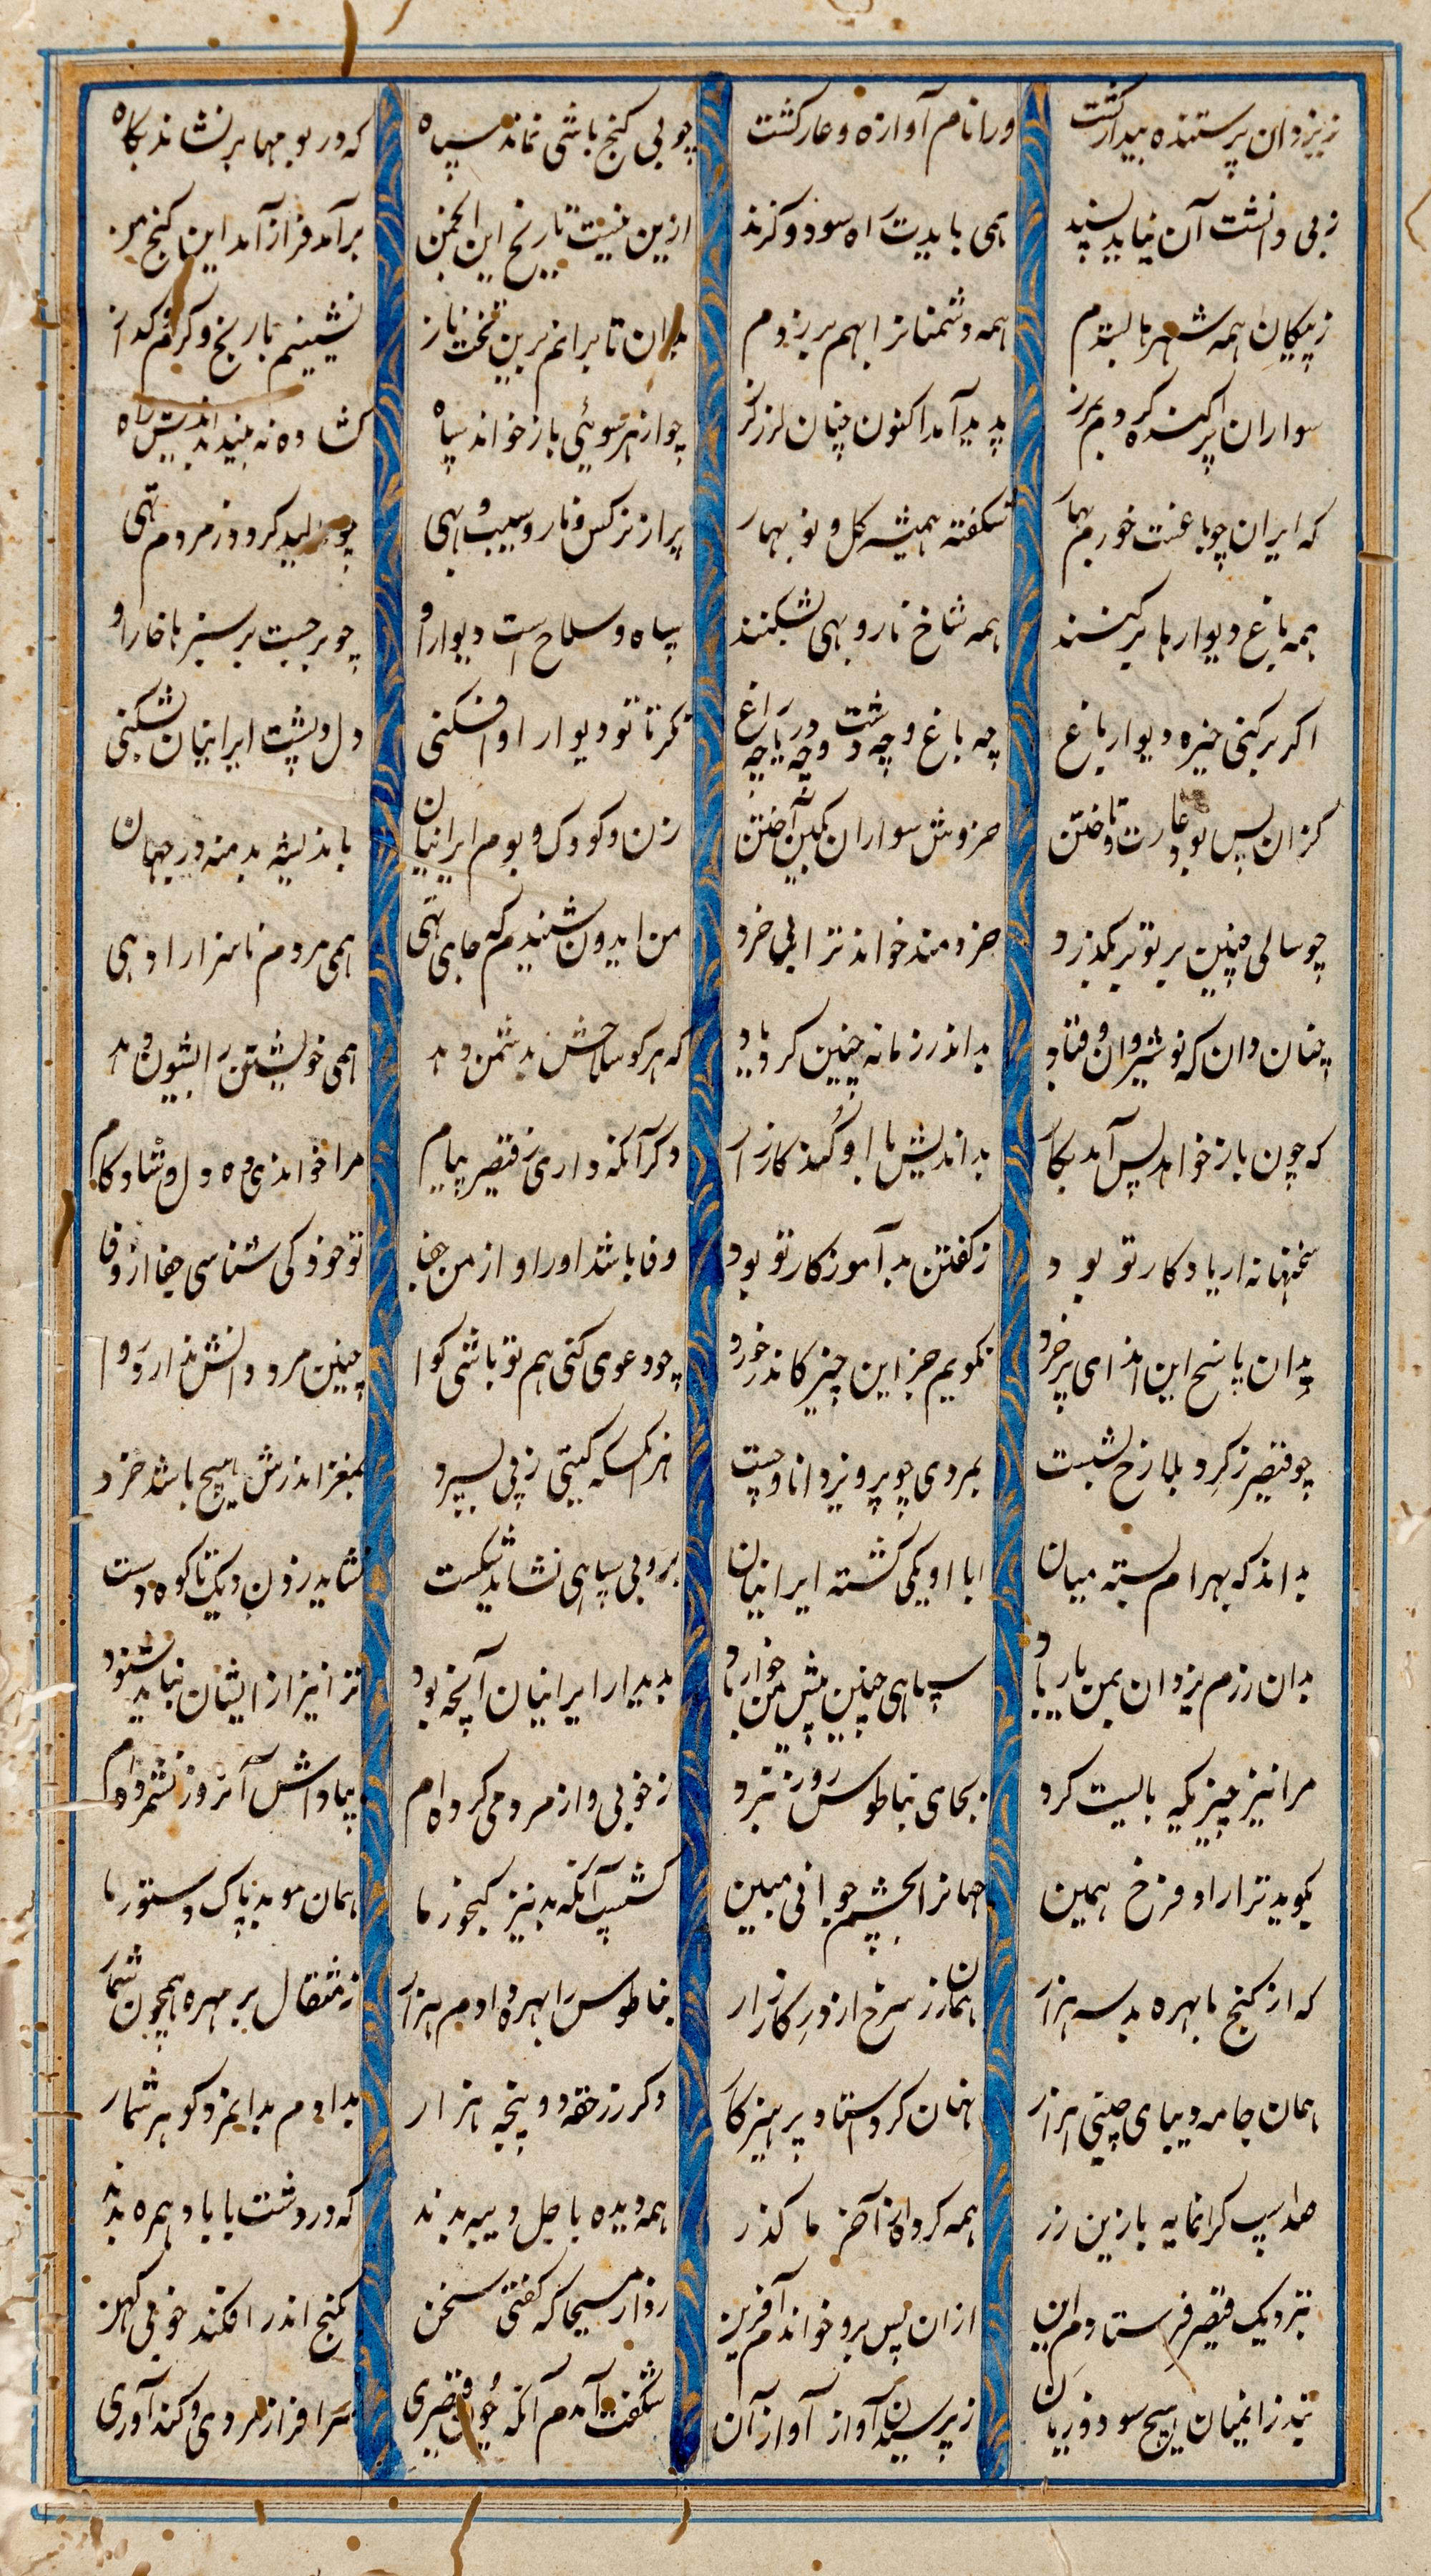 زیزدان پرستنده بیدار گشت ورا نام آوازه و عار گشت چو بی گنج باشی نماند سپاه که در بوم ها بر نشاند بگاه
ز بی دانشت آن نیاید پسند همی بایدت راه سود و گزند ازین نیست تاریخ این انجمن برآمد فراز آمد این گنج من
ز پیکان همه شهرها بستدم همه دشمنانرا بهم بر زدم بدان تا برانم برین تخت ناز نشینم با رنج و گرم و گداز
سواران پراکنده کردم بمرز پدید آمد اکنون چنان لرز لرز چو از هر سوئی باز خواند سپاه گشاده نه بیند بداندیش راه
که ایران چو باغیست خرم بهار شکفته همیشه گل و نو بهار پر از نرگس و نار و سیب و بهی چو پالیز گردد ز مردم تهی
همه باغ دیوارها بر کنند همه شاخ نار و بهی بشکنند سپاه و سلاح است دیوار او چو پرچینت بر سیر ها خار او
اگر بر کنی خیره دیوار باغ چه باغ و چه دشت و چه دریا چه راغ نگر تا تو دیوار او افکنی دل و پشت ایرانیان بشکنی
کزان پس بود غارت و تاختن خروش سواران کمین آختن زن و کودک و بوم ایرانیان باندیشه بد منه در جهان
چو سالی چنین بر تو بر بگذرد خردمند خواند ترا بی خرد من ایدون شنیدم که جای تهی همی مردم ناسزا را دهی
چنان دان که نوشیروان قباد بداندر زمانه چنین کرد یاد که هر کو سلاحش بدشمن دهد همی خویشتن را بشیون دهد
که چون باز خواهد پس آمد بکار بداندیش با او کند کارزار دگر آنکه داری ز قیصر پیام مرا خواندی ده دل و شادکام
سخنها نه از یادگار تو بود ز گفتن بدآموزگار تو بود وفا باشد او را و از من جفا تو خود کی شناسی جفا از وفا
بدان پاسخ این اندای پر خرد نگویم جز این چیز کاندر خورد چو دعوی کنی هم تو باشی گوا چنین مرد دانش ندارد روا
چو قیصر ز گرد بلا رخ بشست بمردی چو پرویز دانا و چست هر آنکسکه گیتی ز پی سپرد بمغز اندرش هیچ باشد خرد
بداند که بهرام بسته میان ابا او یکی گشته ایرانیان برو بی سپاهی نشاید شکست نشاید زدن دیک تا کوه دست
بدان رزم یزدان بمن یار باد سپاهی چنین پیش من خوار باد بدیدار ایرانیان آنچه بود ترا نیز از ایشان بباید شنود
مرا نیز چیزیکه بایست کرد بجای نیاطوس روز نبرد ز خوبی و از مردمی کرده ام بپاداش آنروز نشمرده ام
بگوید ترا زاد فرخ همین جهانرا بچشم جوانی مبین گشسپ آنکه بد نیز گنجور ما همان موبد پاک دستور ما
که از گنج ما بهره بد سه هزار همان زر سرخ از در کارزار نیاطوس را بهره دادم هزار ز مثقال بر مهره همچون شمار
همان جامه دیبای چینی هزار نهان کرد استاد پرهیزگار دگر زر خفه دو پنجه هزار بدادم بدانمزد گوهر شمار
صد اسپ گرانمایه با زین زر همه کرده از آخر ما گذر همه دیده با جل دیبه بدند که در دشت با باد همره بدند
بنزدیک قیصر فرستادم این ازان پس برو خواندم آفرین ز دار مسیحا که گفتی سخن بگنج اندر افکند چوبی کهن
نبد زانمیان هیچ سود و زیان ز پرسیدن آواز آواز آن شگفت آمدم آنکه چون قیصری سرافراز مردی و کندآوری